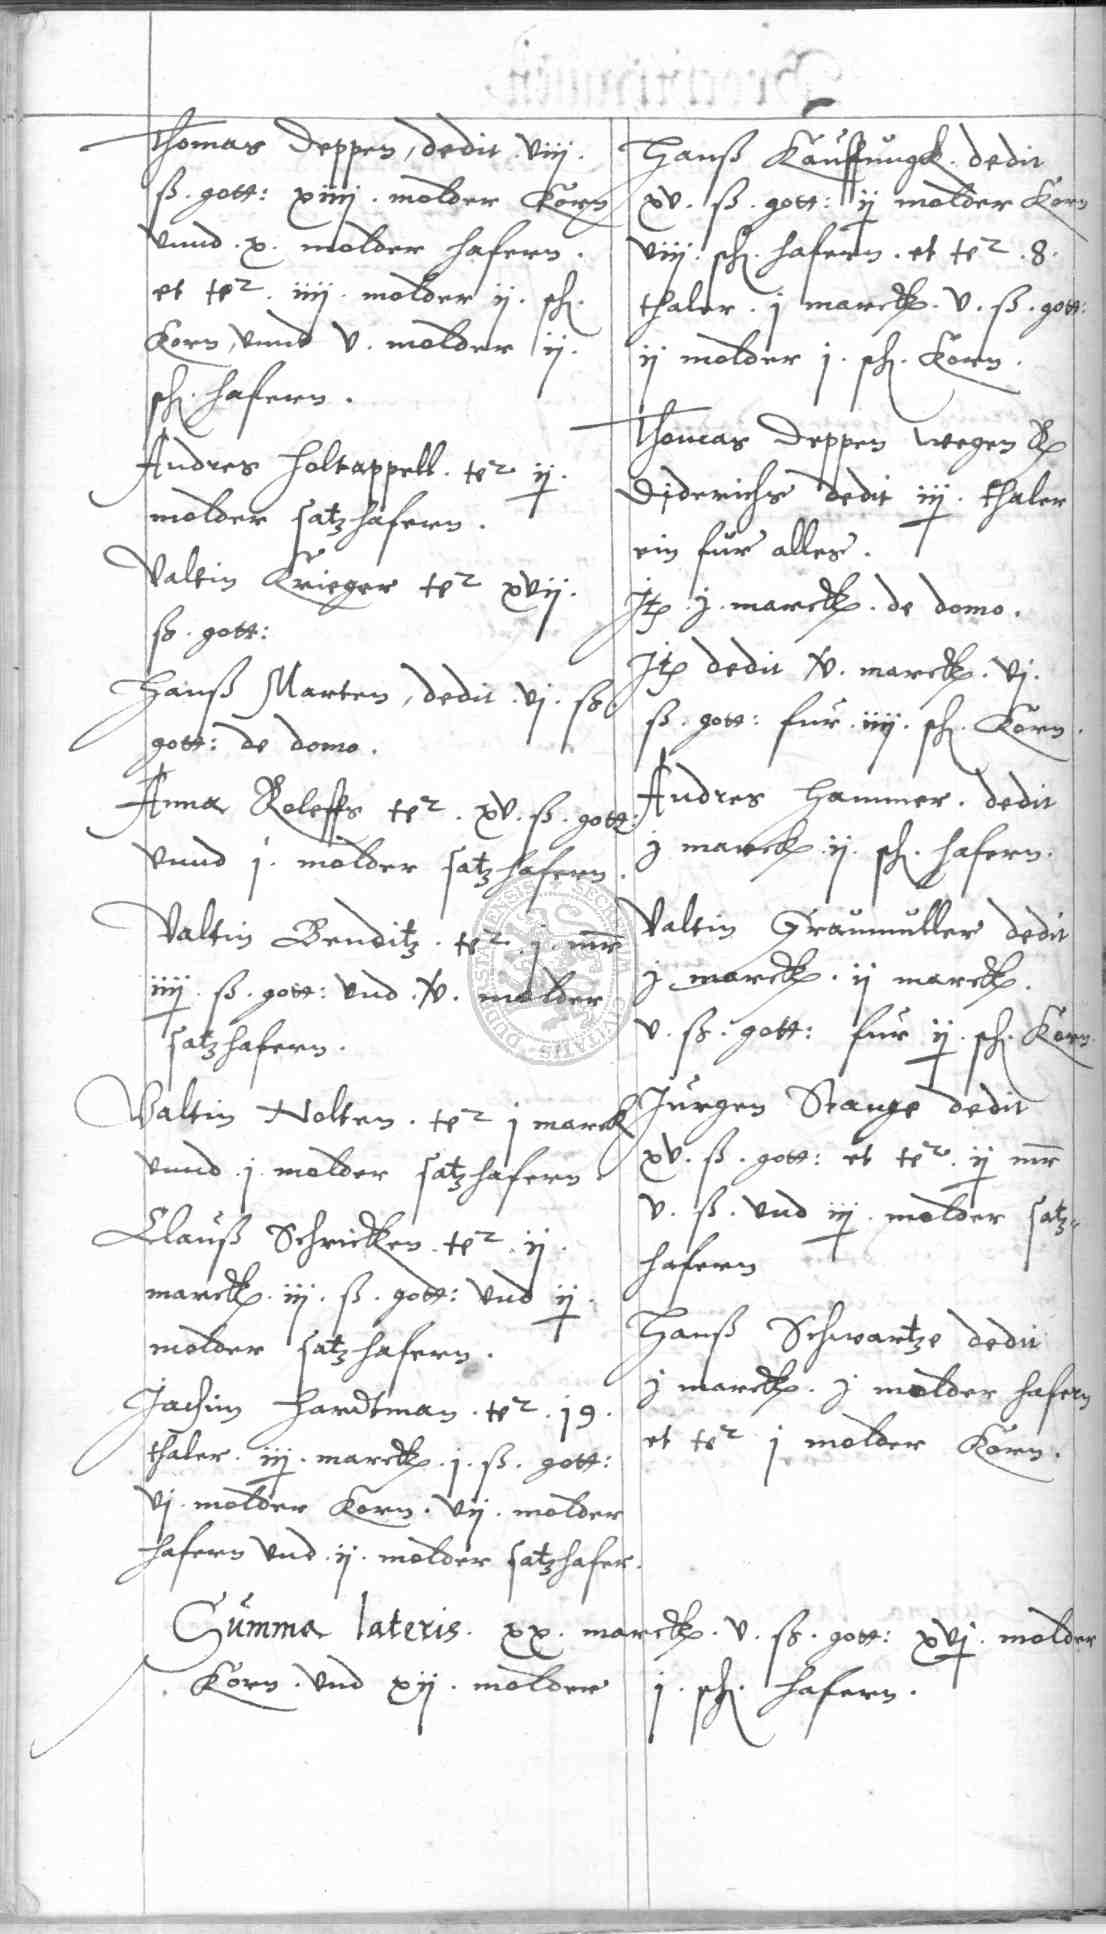 Thomas Deppen, dedit .viij.
ß. gott: xiiij. molder Korn
vnnd .x. molder hafern.
et te2. iiij. molder ij. sch.
Korn, vnnd v. molder ij.
sch. hafern.
Andres Holtappell. te2 ij.
molder satzhafern.
Valtin Krieger te2 xvij.
ß. gott:
Hanß Marten, dedit .vj. ß
gott: de domo.
Anna Roleffs te2. xv. ß. gott:
vnnd j. molder satzhafern.
Valtin Benditz. te2. j. mr
iiij. ß. gott: vnd .v. molder
satzhafern.
Valtin Nolten. te2 j marck
vnnd .j. molder satzhafern
Clauß Schricken. te2. ij.
marck. iij. ß. gott: vnd ij.
molder satzhafern.
Jachim Hardtman. te2. 19.
thaler. iij. marck. j. ß. gott:
vj. molder Korn. vij. molder
hafern vnd .ij. molder satzhafer.
Hanß Kauffungk. dedit
xv. ß. gott: ij molder Korn
viij. sch. hafern. et te2 .8.
thaler. j marck. v. ß. gott:
ij molder j. sch. Korn.
Thomas Deppen wegen
Diderichs dedit iij. thaler
ein fur alles.
Itp. j. marck. de domo.
Itp dedit v. marck. vj.
ß. gott: fur .iiij. sch. Korn.
Andres Hammer. dedit
j marck ij. sch. hafern.
Valtin Graumuller dedit
j marck. ij marck.
v. ß. gott: fur ij. sch. Korn.
Jurgen Stange dedit
xv. ß. gott: et te2. ij mr
v. ß. vnd iij. molder satz-
hafern
Hanß Schwartze dedit
j marck. j molder hafern
et te2 j molder Korn.
Summa lateris. xx. marck. v. ß. gott: xvj. molder
Korn. vnd xij. molder j. sch. hafern.